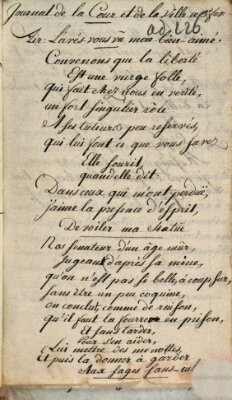 Journal de la Cour et de la Ville
ad, 226.
air: L'avés-vous vu mon bien-aimé.
Convenons que la liberté
Est une vierge folle,
qui fait chez nous en vérité,
un fort singulier rôle
A ses amateurs peu réservés,
qui lui font ce que vous savez
Elle sourit,
quand elle dit:
Dans ceux qui m'ont perdue,
j'aime la présence d'esprit,
De voiler ma statue
Nos senateur d'un âge mûr,
Jugeant d'après sa mine,
qu'on n'est pas si belle, à coup sur,
sans être un peu coquine,
on conclut, comme de raison,
qu'il faut la fourrer en prison,
Et sans tarder,
Pour s'en aider,
Lui mettre des menottes
Et puis la donner à garder
Aux sages sans-cul